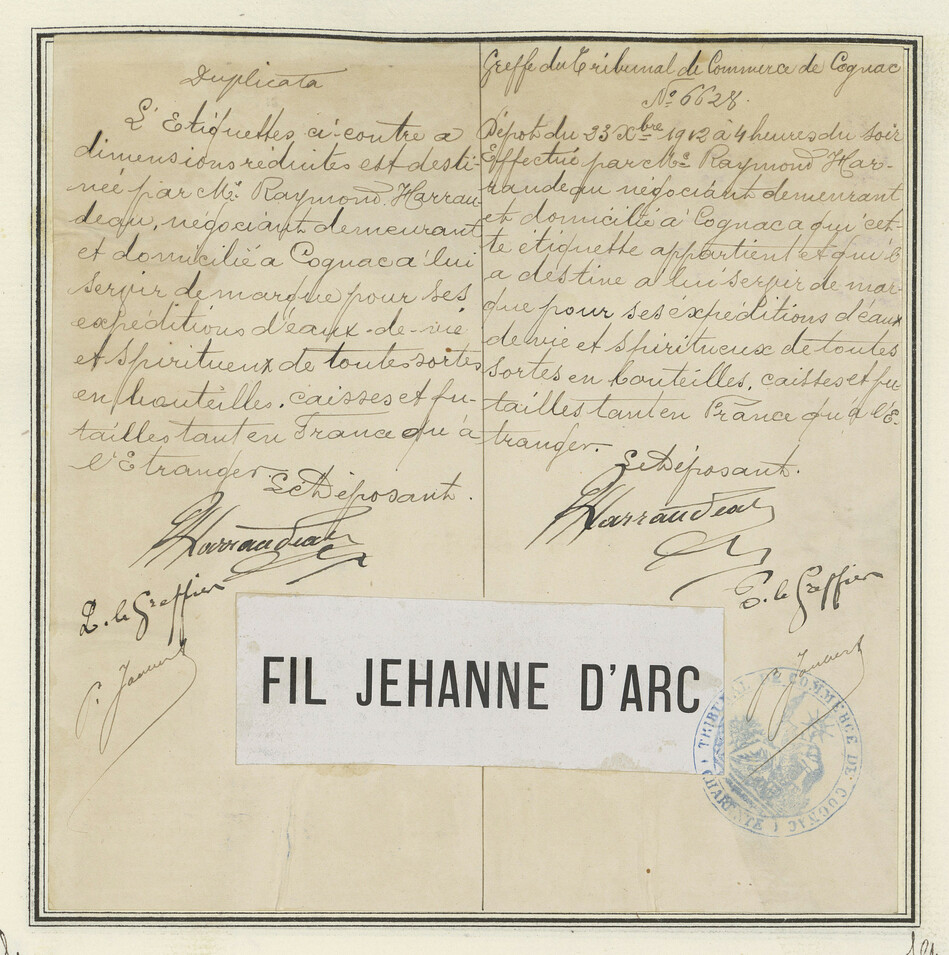 Duplicata
L'Etiquettes ci-contre a
dimensions réduites est desti-
née par Mr. Raymond Harrau-
deau, négociant demeurant
et domicilié à Cognac a lui
servir de marque pour ses
expéditions d'eaux-de-vie
et spiritueux de toutes sortes
en bouteilles, caisses et fu-
tailles tant en France qu'à
l'Etranger.
Le Déposant.
Harraudeau
P. le Greffier
Greffe du Tribunal de Commerce de Cognac
No. 6628.
Dépot du 23 Xbre 1912 à 4 heures du soir
Effectué par Mr. Raymond Har-
raudeau négociant demeurant
et domicilié à Cognac a qui cet-
te étiquette appartient et qu'il
a destine a lui servir de mar-
que pour ses éxpéditions d'éaux
de vie et spiritueux de toutes
sortes en bouteilles, caisses et fu-
tailles tant en France qu'à l'E-
tranger.
Le Déposant.
Harraudeau
P. le Greffier
FIL JEHANNE D'ARC
TRIBUNAL DE COMMERCE DE COGNAC
(CHARENTE)